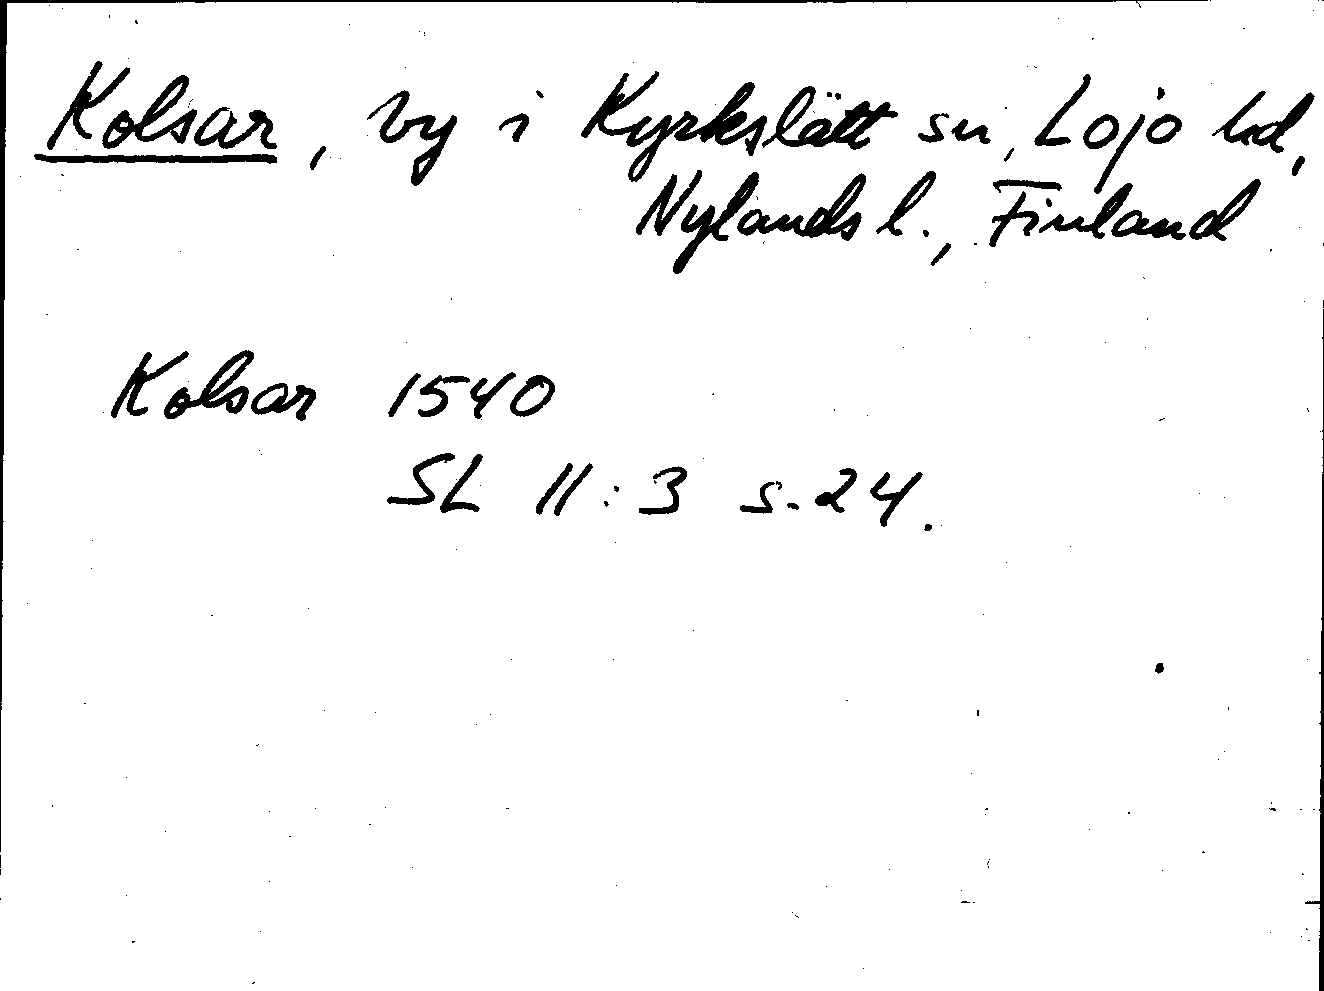 Kolsar, by i Kyrkslätt sn, Lojo hd,
Nylands l., Finland
Kolsar 1540
SL II:3 s. 24.